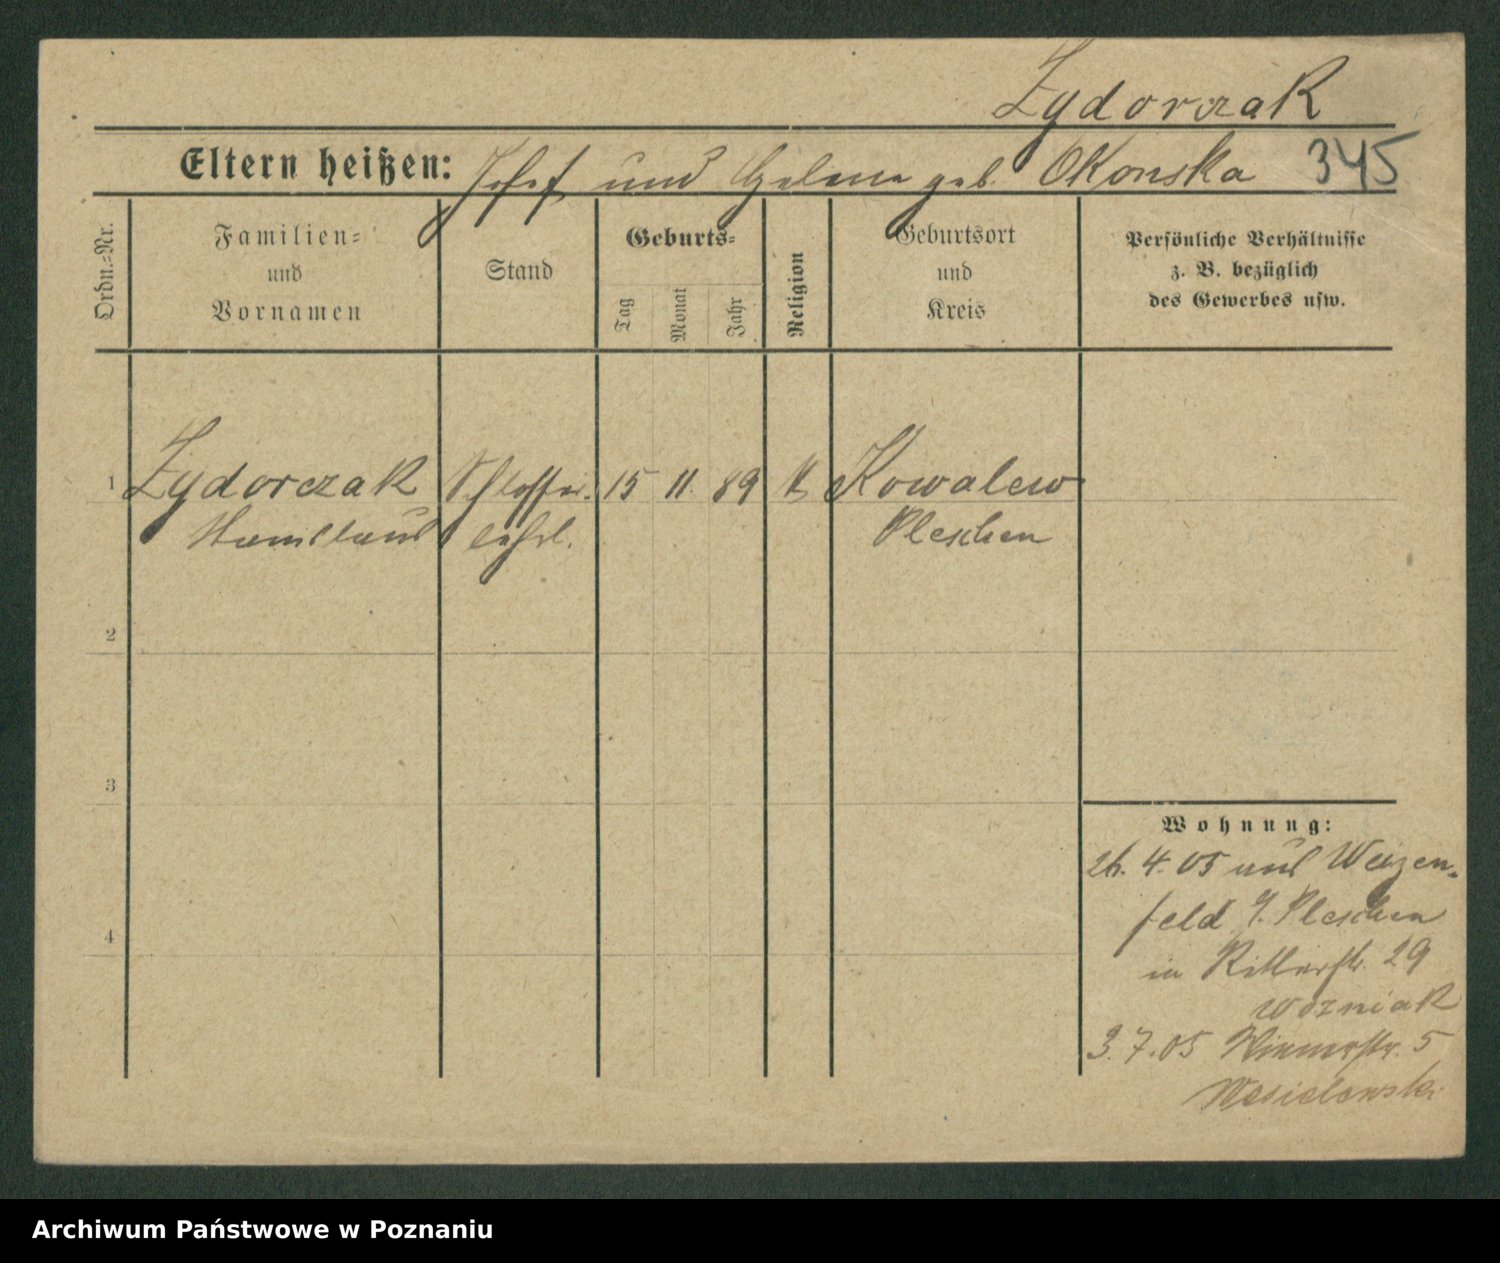 Zydorczak
Eltern heißen: Josef und Helena geb. Okonska 345
Ordn.=Nr.
Familien=
und
Vornamen
Stand
Geburts=
Tag
Monat
Jahr
Religion
Geburtsort
und
Kreis
Persönliche Verhältnisse
z. B. bezüglich
des Gewerbes usw.
1 Zydorczak Schlosser. 15 11. 89 k Kowalew
lehrl. Pleschen
2
3
4
Wohnung:
26. 4. 05 aus Weizen-
feld K. Pleschen
in Ritterstr. 29
Wozniak
3. 7. 05 5
Wesielewski
Archiwum Państwowe w Poznaniu